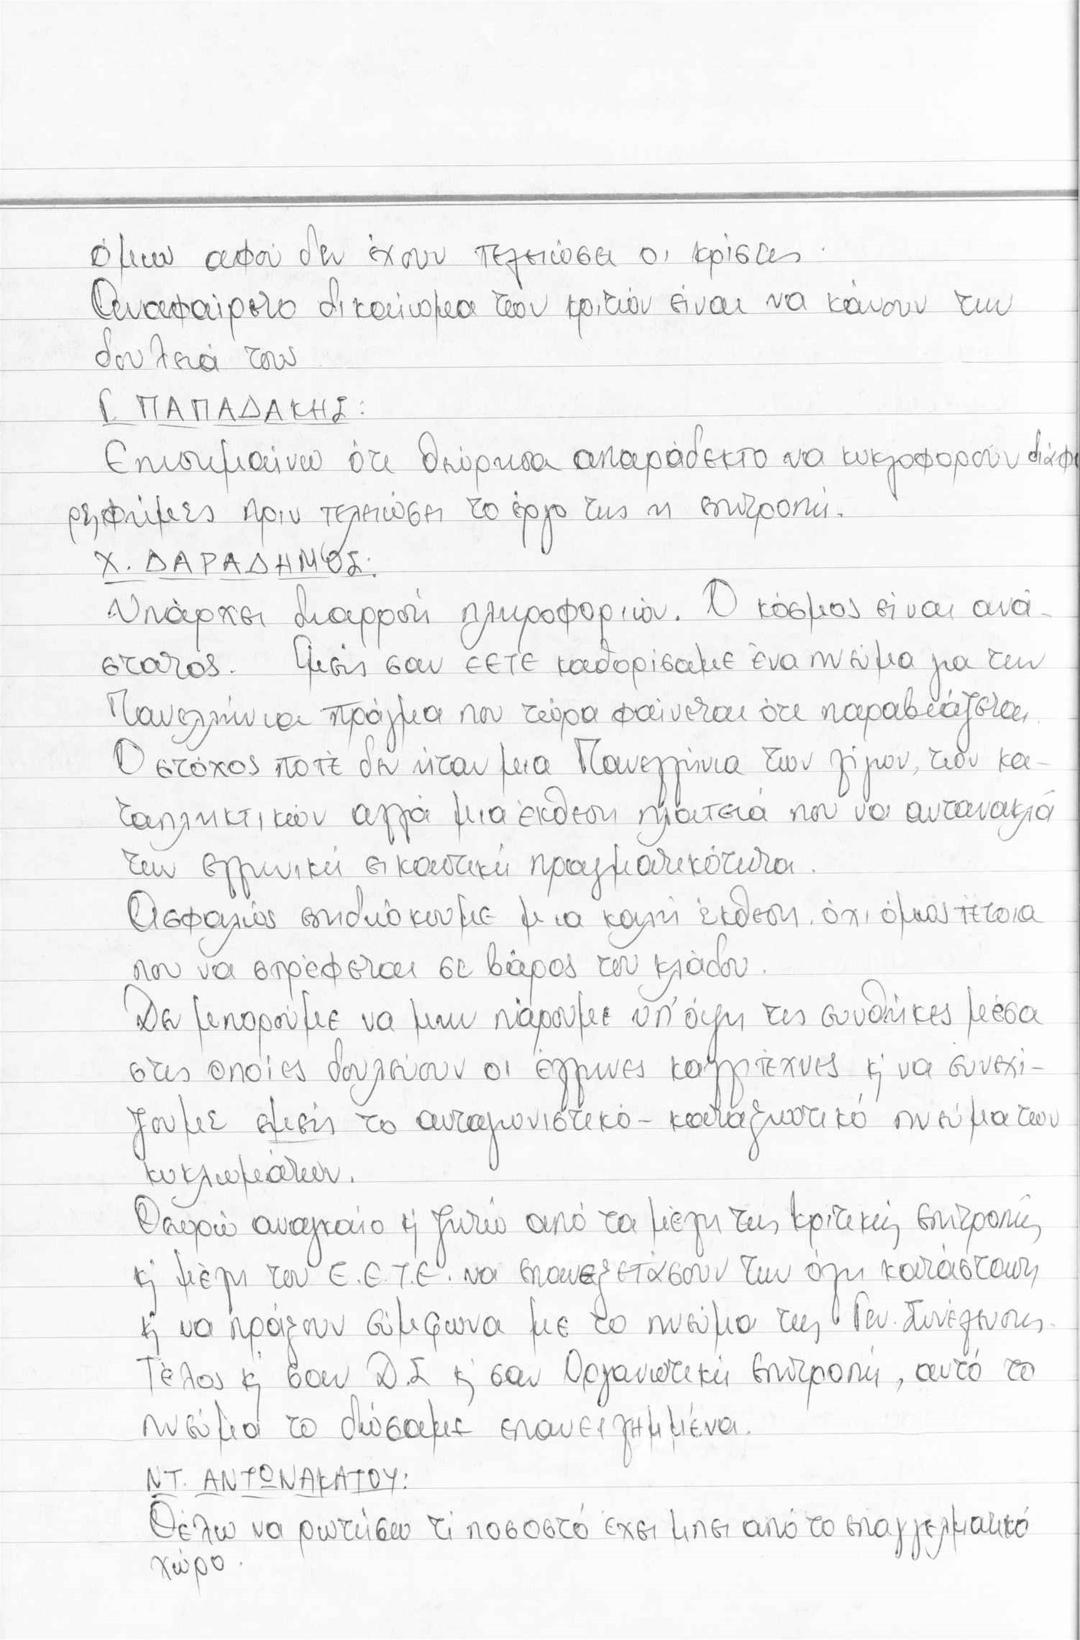 όμως αφού δεν έχουν τελειώσει οι κρίσεις.
Αναφαίρετο δικαίωμα των κριτών είναι να κάνουν την
δουλειά τους
Γ. ΠΑΠΑΔΑΚΗΣ:
Επισημαίνω ότι θεώρησα απαράδεκτο να κυκλοφορούν διάφο
ρες φήμες πριν τελειώσει το έργο της η επιτροπή.
Χ. ΔΑΡΑΔΗΜΟΣ:
Υπάρχει διαρροή πληροφοριών. Ο κόσμος είναι ανά-
στατος. Εμείς σαν ΕΕΤΕ καθορίσαμε ένα πνεύμα για την
Πανελλήνια πράγμα που τώρα φαίνεται ότι παραβιάζεται.
Ο στόχος ποτέ δεν ήταν μια Πανελλήνια των λίγων, των κα-
ταπληκτικών αλλά μια έκθεση πλατειά που να αντανακλά
την ελληνική εικαστική πραγματικότητα.
Ασφαλώς επιδιώκουμε μια καλή έκθεση. όχι όμως τέτοια
που να στρέφεται σε βάρος του κλάδου.
Δεν μπορούμε να μην πάρουμε υπ' όψη τις συνθήκες μέσα
στις οποίες δουλεύουν οι έλληνες καλλιτέχνες κ' να συνεχί-
ζουμε εμείς το ανταγωνιστικό - καταξιωτικό πνεύμα των
κυκλωμάτων.
Θεωρώ αναγκαίο κ' ζητώ από τα μέλη της κριτικής επιτροπής
κ' μέλη του Ε.Ε.Τ.Ε. να επανεξετάσουν την όλη κατάσταση
κ' να πράξουν σύμφωνα με το πνεύμα της Γεν. Συνέλευσης.
Τέλος κ' σαν Δ.Σ κ' σαν Οργανωτική επιτροπή, αυτό το
πνεύμα το δώσαμε επανειλημμένα.
ΝΤ. ΑΝΤΩΝΑΚΑΤΟΥ:
Θέλω να ρωτήσω τί ποσοστό έχει μπει από το επαγγελματικό
χώρο.